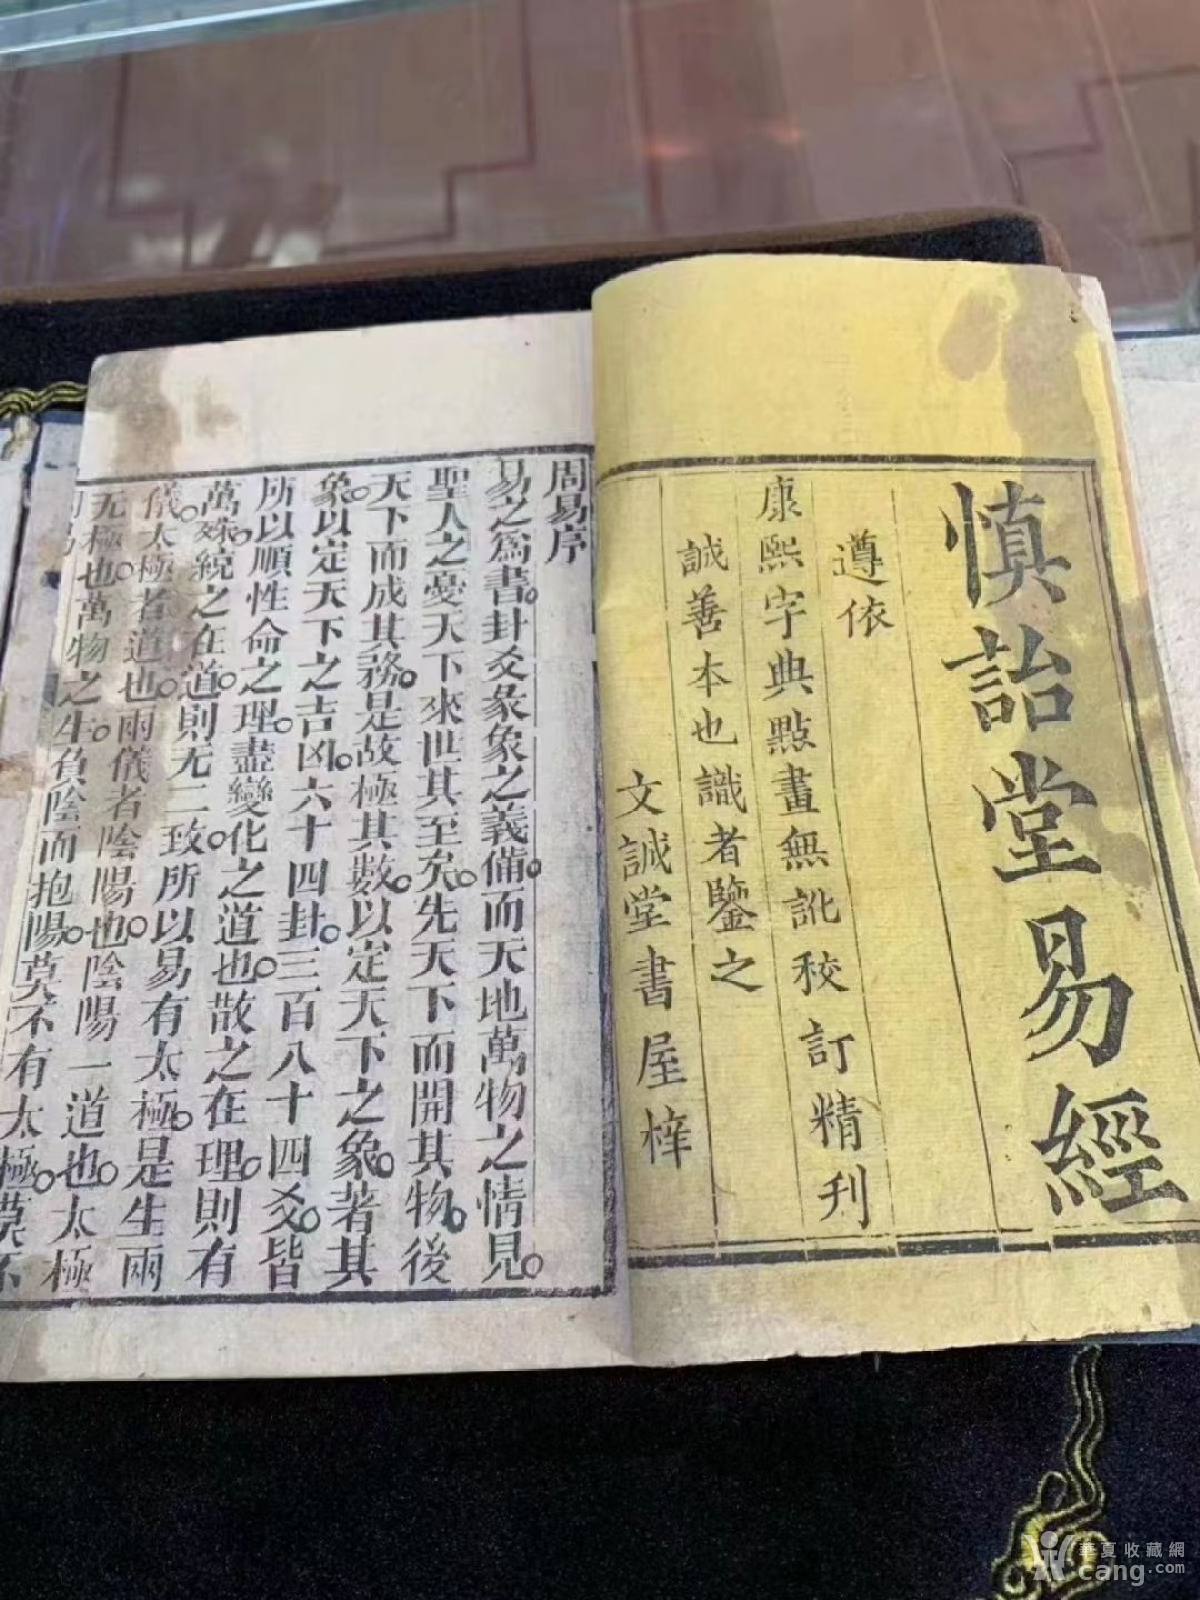 慎詒堂易經
遵依
康熙字典點畫無訛校訂精刋
誠善本也識者鑒之
文誠堂書屋梓
周易序
易之爲書卦爻彖象之義備而天地萬物之情見
聖人之憂天下來世其至矣先天下而開其物後
天下而成其務是故極其數以定天下之象著其
象以定天下之吉凶六十四卦三百八十四爻皆
所以順性命之理盡變化之道也散之在理則有
萬殊統之在道則无二致所以易有太極是生兩
儀太極者道也兩儀者陰陽也陰陽一道也太極
无極也萬物之生負陰而抱陽莫不有太極莫不
華夏收藏網
cang.com